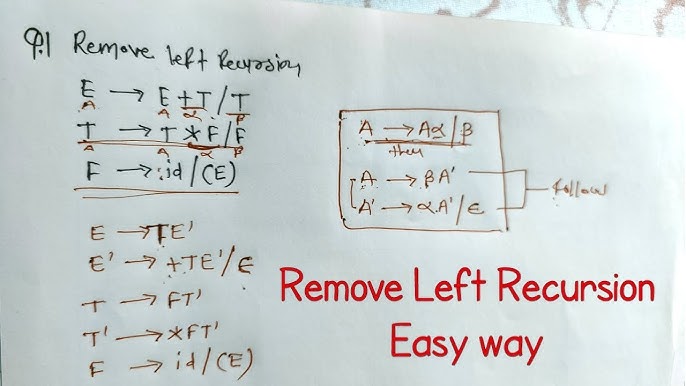 Q.1 Remove left Recursion
E → E+T/T
A A α β
T → T*F/F
A A α β
F → id/(E)
E → TE'
E' → +TE'/ε
T → FT'
T' → *FT'
F → id/(E)
A → Aα/β
then
A → βA'
A' → αA'/ε
follow
Remove Left Recursion
Easy way